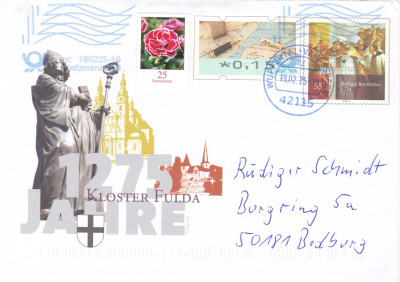 190225
25
Deutschland
*0,1
55
WUPPERTAL
19.02.25
42115
1275
KLOSTER FULDA
JAHRE
Rüdiger Schmidt
Burgring 5a
50181 Bedburg